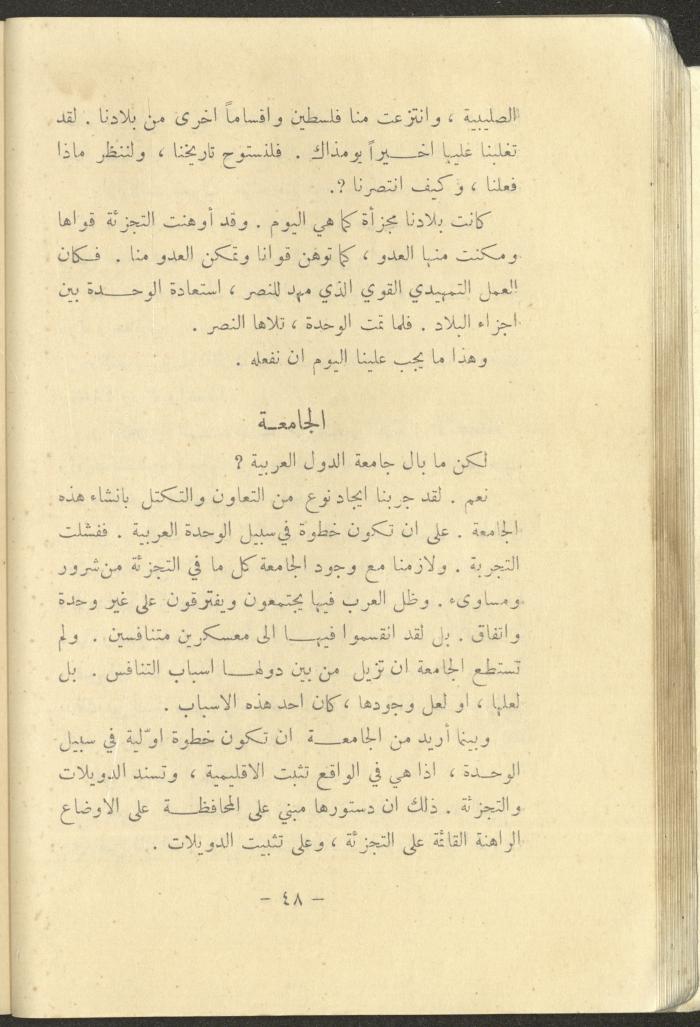 الصليبية ، وانتزعت منا فلسطين واقساماً اخرى من بلادنا . لقد
تغلبنا عليها اخـــيراً يومذاك . فلنستوح تاريخنا ، ولننظر ماذا
فعلنا ، وكيف انتصرنا ؟.
كانت بلادنا مجزأة كما هي اليوم . وقد أوهنت التجزئة قواها
ومكنت منها العدو ، كما توهن قوانا وتمكن العدو منا . فـكان
العمل التمهيدي القوي الذي مهد للنصر ، استعادة الوحـــدة بين
اجزاء البلاد . فلما تمت الوحدة ، تلاها النصر .
وهذا ما يجب علينا اليوم ان نفعله .
الجامعـــة
لكن ما بال جامعة الدول العربية ؟
نعم . لقد جربنا ايجاد نوع من التعاون والتكتل بانشاء هذه
الجامعة . على ان تكون خطوة في سبيل الوحدة العربية . ففشلت
التجربة . ولازمنا مع وجود الجامعة كل ما في التجزئة من شرور
ومساوىء . وظل العرب فيها يجتمعون ويفترقون على غير وحدة
واتفاق . بل لقد انقسموا فيهـــا الى معسكرين متنافسين . ولم
تستطع الجامعة ان تزيل من بين دولهـــا اسباب التنافس . بل
لعلها ، او لعل وجودها ، كان احد هذه الاسباب .
وبينما أريد من الجامعـــة ان تكون خطوة اوّلية في سبيل
الوحـدة ، اذا هي في الواقع تثبت الاقليمية ، وتسند الدويلات
والتجزئة . ذلك ان دستورها مبني على المحافظـــة على الاوضاع
الراهنة القائمة على التجزئة ، وعلى تثبيت الدويلات .
– ٤٨ –